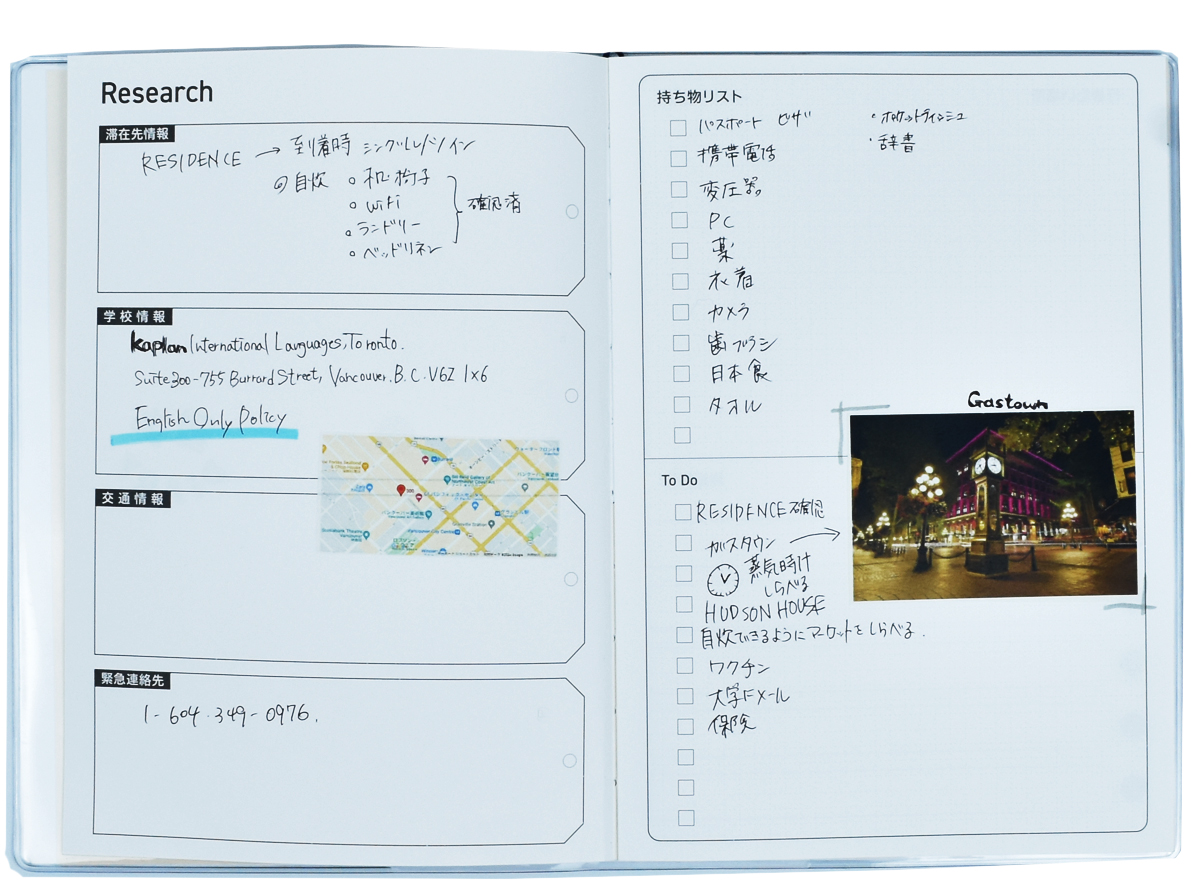 Research
滞在先情報
RESIDENCE → 到着時 シングル/ツイン
自炊 ○ 机・椅子
○ WiFi
○ ランドリー
○ ベッドリネン
確認済
学校情報
Kaplan International Languages, Toronto.
Suite300-755 Burrard Street, Vancouver. B.C. V6Z 1×6
English Only Policy
交通情報
緊急連絡先
1-604-349-0976.
持ち物リスト
パスポート ビザ
携帯電話
変圧器
PC
薬
衣着
カメラ
歯ブラシ
日本食
タオル
・ポケットティッシュ
・辞書
Gastown
To Do
RESIDENCE確認
ガスタウン →
蒸気時け
しらべる
HUDSON HOUSE
自炊できるようにマーケットをしらべる.
ワクチン
大学にメール
保険